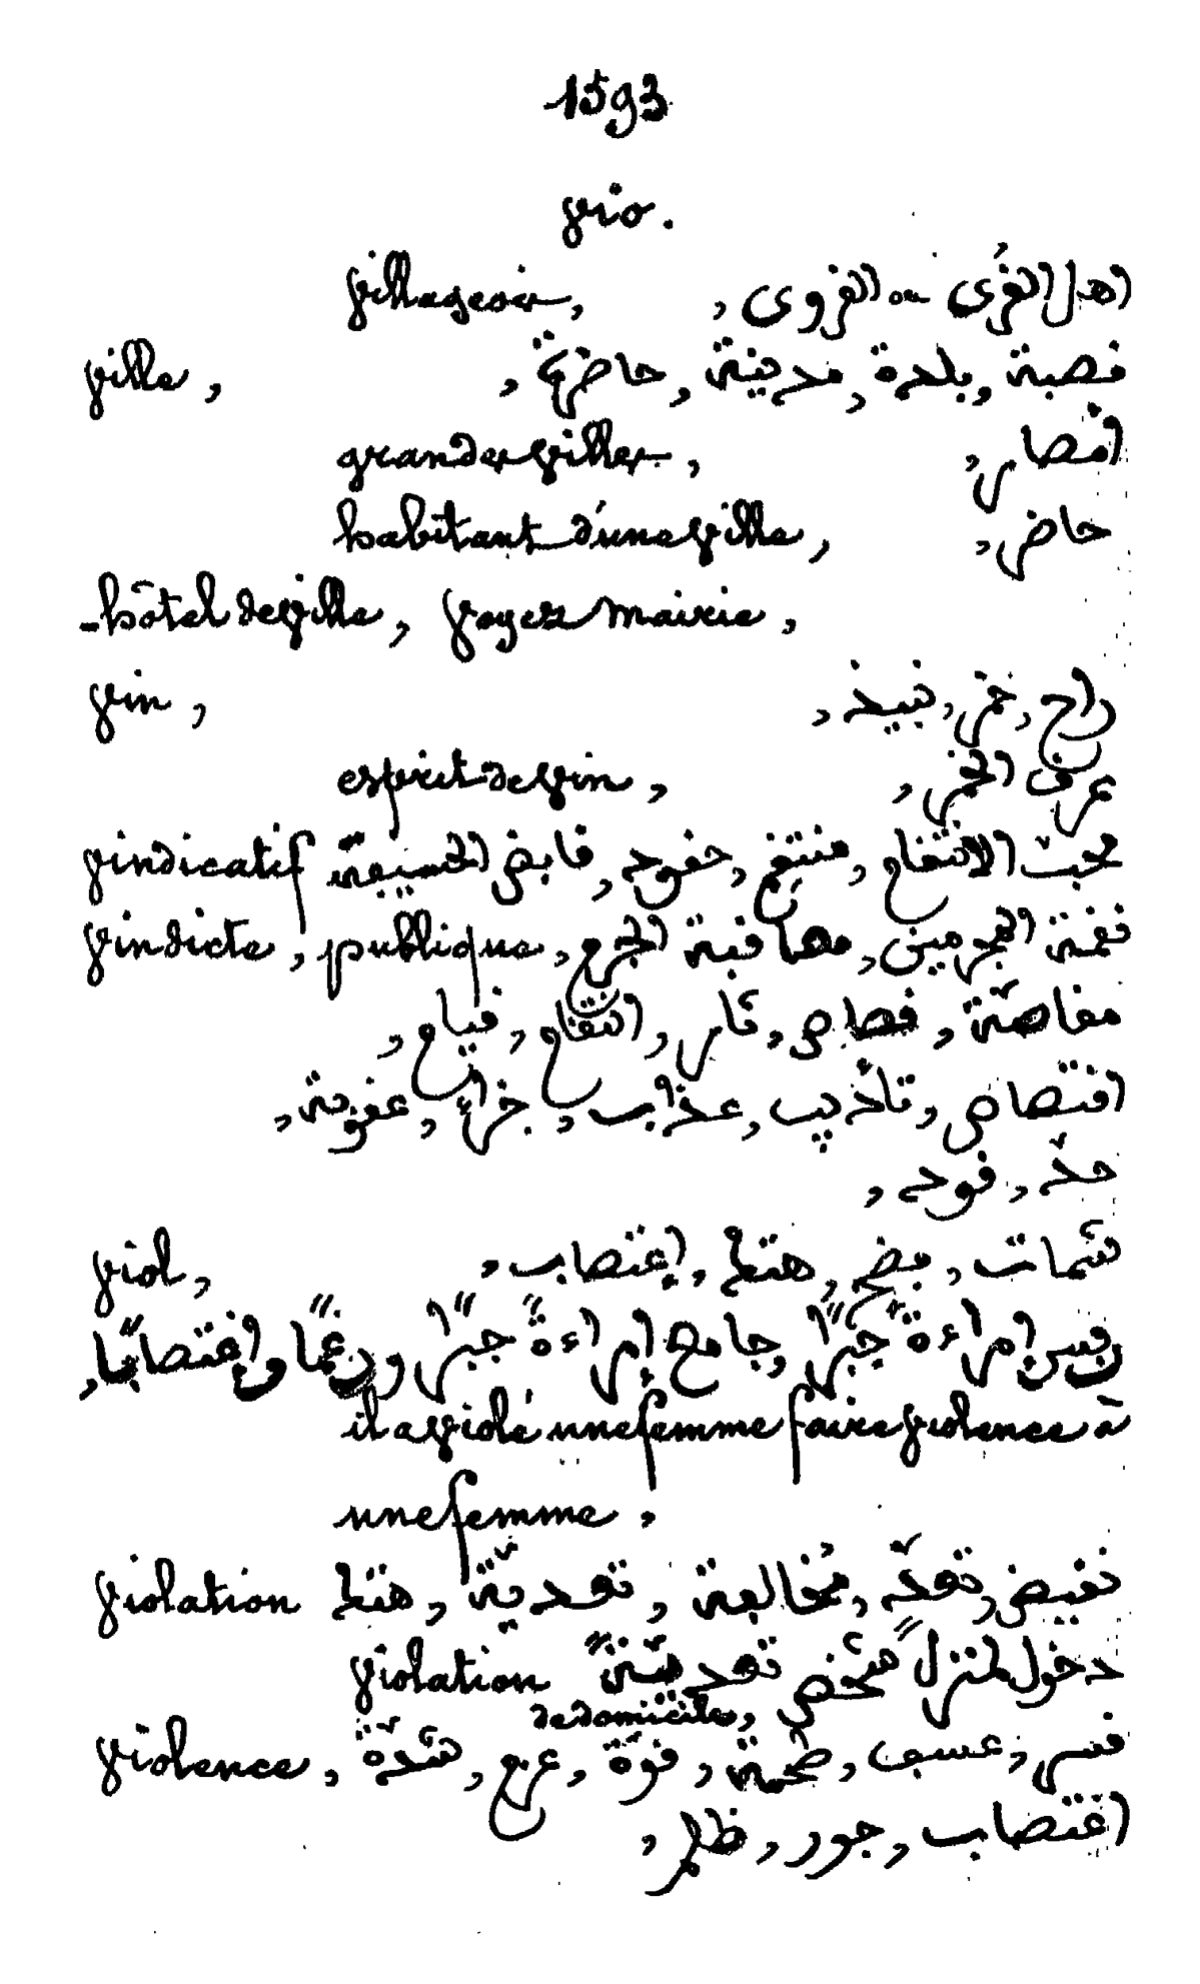 1593
vio.
villageois, اهل القرى ou القروى,
ville, قصبة, بلدة, مدينة, حاضرة,
grandes villes, امصار,
habitant d'une ville, حاضر,
-hôtel de ville, voyez mairie,
vin, راح, خمر, نبيذ,
esprit de vin, عرق الخمر,
vindicatif محبّ الانتقام, منتقم, حقود,
vindicte, publique, نقمة المجرمين, معاقبة الجرم,
مقاصّة, قصاص, ثأر, انتقام, قيام,
اقتصاص, تأديب, عذاب, جزاء, عقوبة,
حدّ, قود,
viol, هتك, إغتصاب,
إمراءة جبرًا, جامع إمراءة جبرًا ورغمًا وإغتصابًا,
il a violé une femme faire violence à
une femme,
violation نقيض, تعدّ, مخالفة, تعديّة, هتك
violation de domicile, دخول لمنزل شخص تعديّةً
violence, قسر, عسف, قوّة, شدّة,
اغتصاب, جور, ظلم,